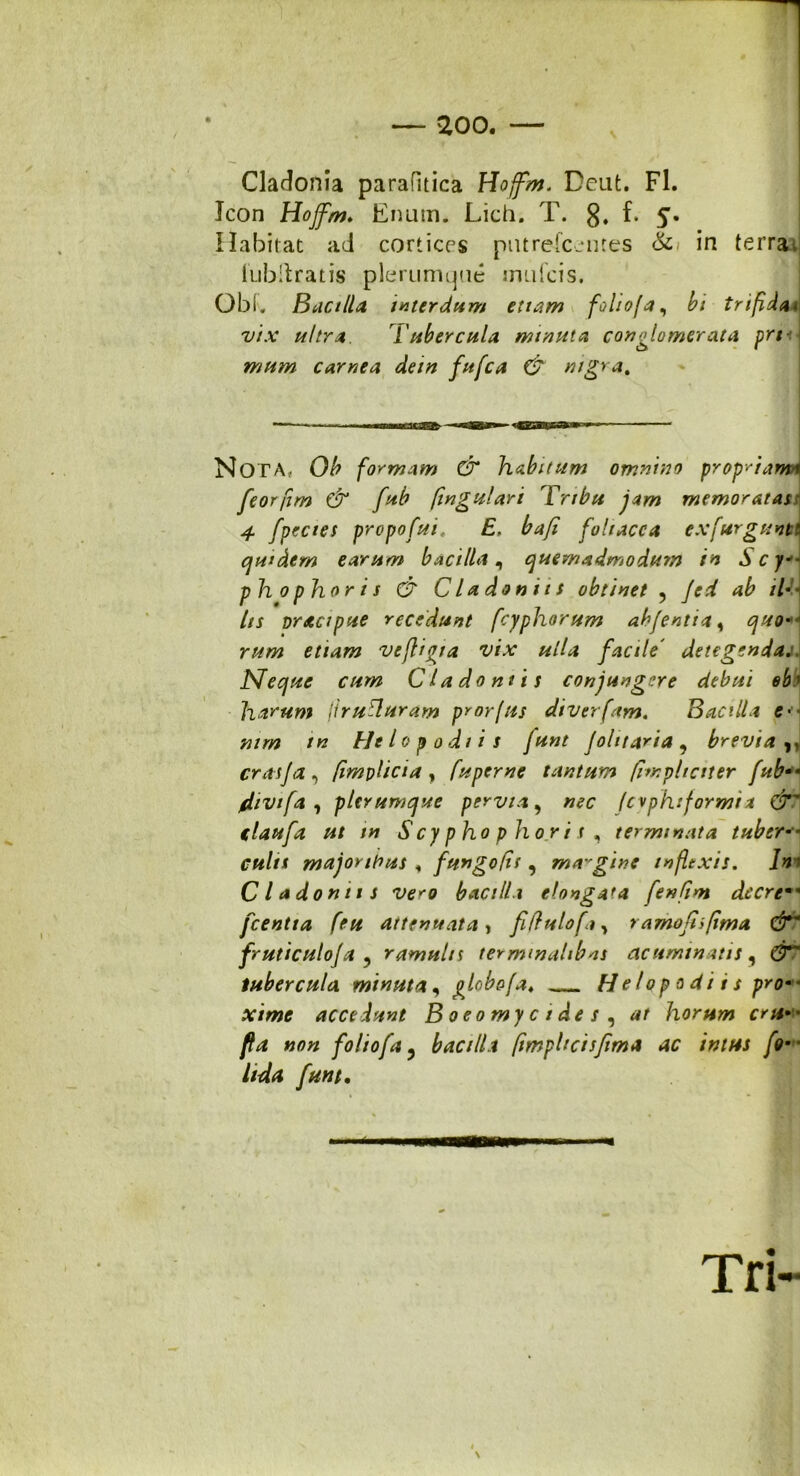 — 200. —
Cladonia paraſitica Hoffm. Deut. Fl.
Icon Hoffm. Enum. Lich. T. 8. f. 5.
Habitat ad cortices putreſcentes & in terra
ſubſtratis plerumqué muſcis.
Obſ. Bacilla interdum etiam folioſa, bi trifida
vix ultra. Tubercula minuta conglomerata pri-
mum carnea dein fuſca & nigra.
NOTA. Ob formam & habitum omnino propriam
ſeorſim & ſub ſingulari Tribu jam memoratas
4 ſpecies propoſui. E. baſi foliacea exſurgunt
quidem earum bacilla, quemadmodum in Scy-
phophoris & Cladoniis obtinet, ſed ab il-
lis præcipue recedunt ſcyphorum abſentia, quo-
rum etiam veſtigia vix ulla facile detegenda.
Neque cum Cladoniis conjungere debui ob
harum ſtructuram prorſus diverſam. Bacilla e-
nim in Helopodiis ſunt ſolitaria, brevia,
crasſa, ſimplicia, ſuperne tantum ſimpliciter ſub-
diviſa, plerumque pervia, nec ſcyphiformia &
clauſa ut in Scyphophoris, terminata tuber-
culis majoribus, fungoſis, margine inflexis. In
Cladoniis vero bacilla elongata ſenſim decre-
ſcentia ſeu attenuata, fiſtuloſa, ramoſisſima &
fruticuloſa, ramulis terminalibus acuminatis, &
tubercula minuta, globoſa. — Helopodiis pro-
xime accedunt Boeomycides, at horum cru-
ſta non folioſa, bacilla ſimplicisſima ac intus ſo-
lida ſunt.
Tri-